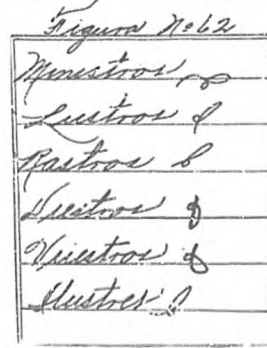 Figura Nº 62
Ministros
Lustros
Rastros
Nuestros
Vuestros
Ilustres